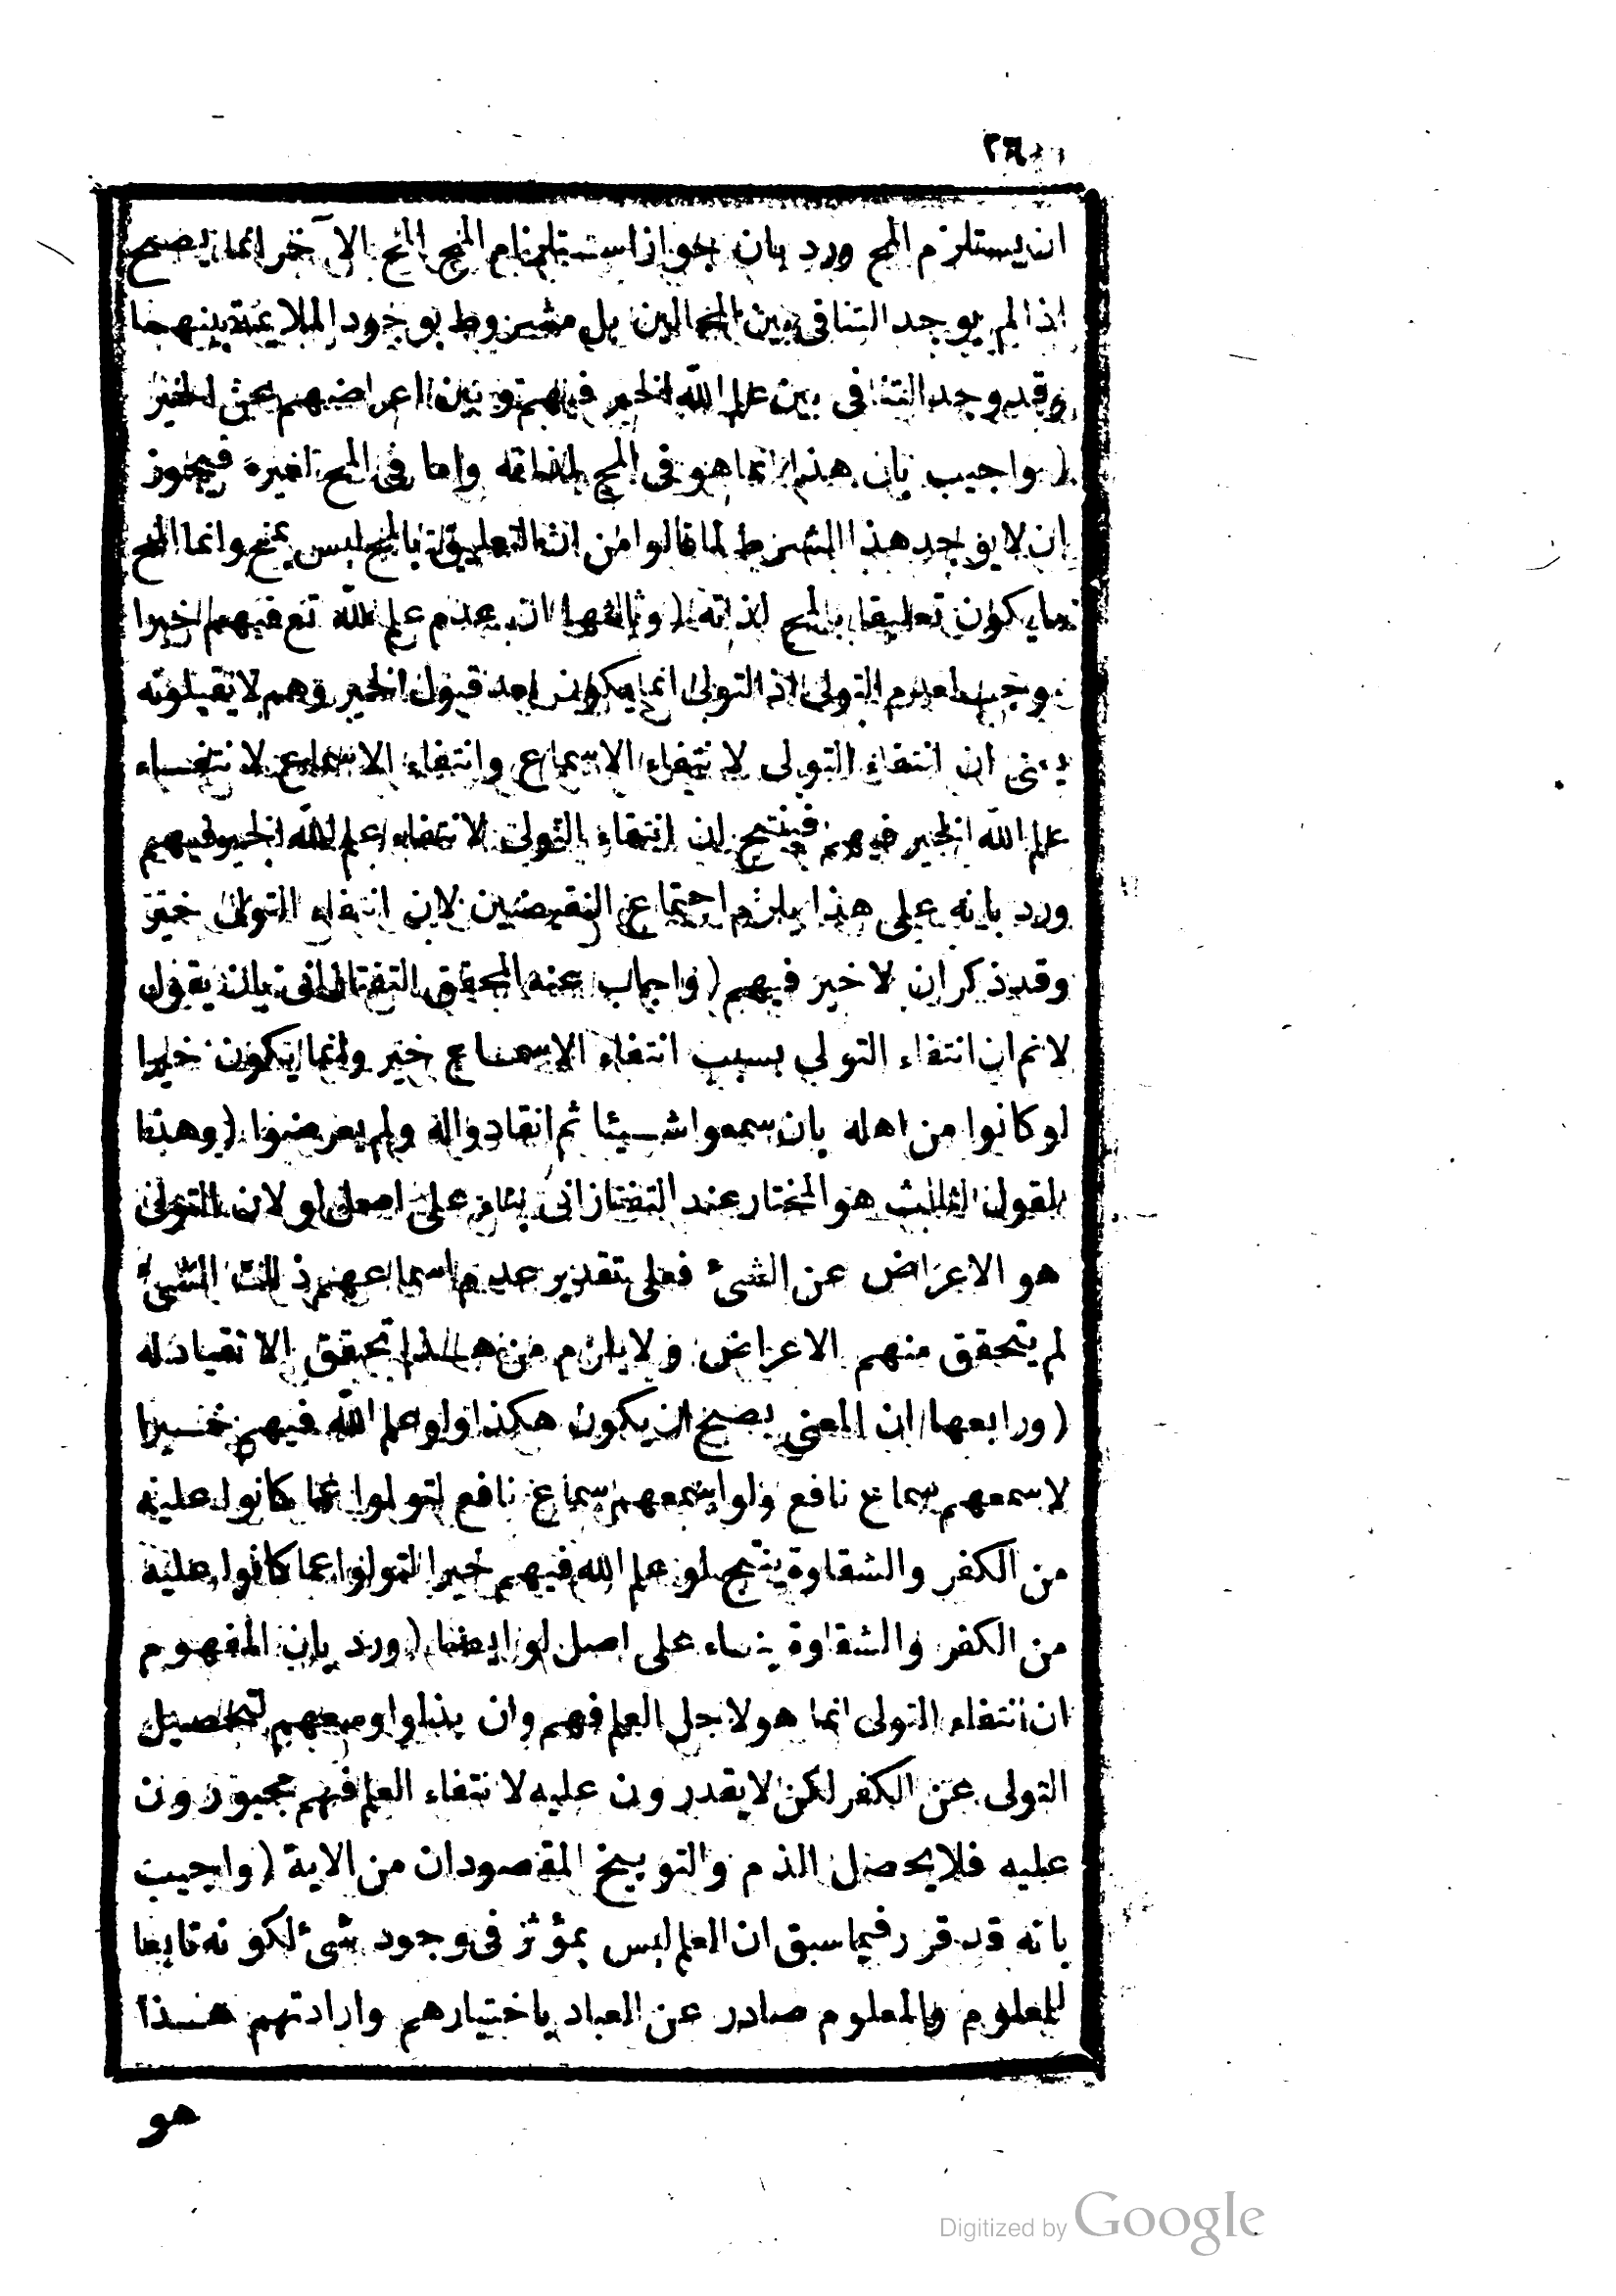 ان يستلزم المح ورد بان جواز استلزام المح المح الآخر انما يصح
اذا لم يوجد التنافى بين المحالين بل مشروط بوجود الملايمة بينهما
وقد وجد التنافى بين علم الله الخير فيهم وبين اعراضهم عن الخير
(واجيب بان هذا انما هو فى المح لذاته واما فى المح لغيره فيجوز
ان لا يوجد هذا الشرط لما قالوا من ان التعليق بالمح ليس بمح وانما المح
ما يكون تعليقا بالمح لذاته (وثالثها ان عدم علم الله تع فيهم خيرا
موجب لعدم التولى اذ التولى انما يكون بعد قبول الخير وهم لا يقبلونه
يعنى ان انتفاء التولى لانتفاء الاسماع وانتفاء الاسماع لانتفاء
علم الله الخير فيهم فينتج ان انتفاء التولى لانتفاء علم الله الخير فيهم
ورد بانه على هذا يلزم اجتماع النقيضين لان انتفاء التولى خير
وقد ذكر ان لا خير فيهم (واجاب عنه المحقق التفتازانى بان يقول
لانم ان انتفاء التولى بسبب انتفاء الاسماع خير وانما يكون خيرا
لو كانوا من اهله بان سمعوا شيئا ثم انقادوا له ولم يعرضوا (وهذا
القول الثالث هو المختار عند التفتازانى بناء على اصل لو لان التولى
هو الاعراض عن الشىء فعلى تقدير عدم اسماعهم ذلك الشىء
لم يتحقق منهم الاعراض ولا يلزم من هذا تحقق الانقياد له
(ورابعها ان المعنى يصح ان يكون هكذا ولو علم الله فيهم خيرا
لاسمعهم سماع نافع ولو اسمعهم سماع نافع لتولوا عما كانوا عليه
من الكفر والشقاوة ينتج لو علم الله فيهم خيرا لتولوا عما كانوا عليه
من الكفر والشقاوة بناء على اصل لو ايضا (ورد بان المفهوم
ان انتفاء التولى انما هو لاجل العلم فهم وان بذلوا وسعهم لتحصيل
التولى عن الكفر لكن لا يقدرون عليه لانتفاء العلم فهم مجبورون
عليه فلا يحصل الذم والتوبيخ المقصودان من الاية (واجيب
بانه قد قرر فيما سبق ان العلم ليس بمؤثر فى وجود شىء لكونه تابعا
للمعلوم والمعلوم صادر عن العباد باختيارهم وارادتهم هذا
هو
Digitized by Google